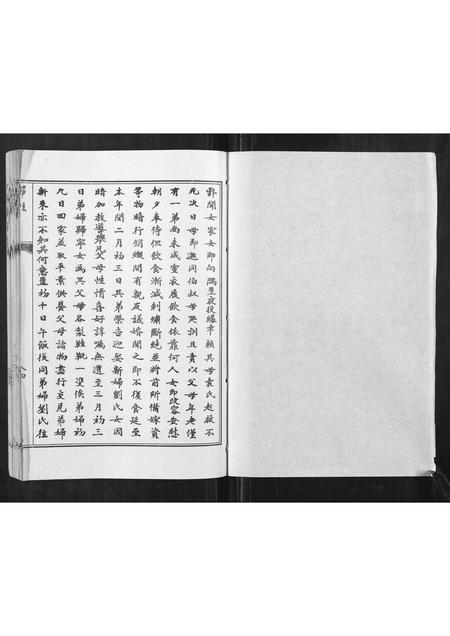 訃聞女家女即向隅生夜投繯幸賴其母袁氏赴救不
死次日母即邀同伯叔母哭訓且責以父母年老僅
有一弟尚未成室衣履飲食依靠何人女即改容安慰
朝夕奉侍但飲食漸減刺繡斷絶並將前所備嫁資
等物暗行銷燬間有親友議婚聞之即不復食延至
本年閏二月初三日其弟榮吉迎娶新婦劉氏女因
暗加教導舉凡父母性情喜好諄囑無遺至三月初三
日弟婦歸寧女爲其父母各製鞋靴一雙俟弟婦初
九日回家並取平素供養父母諸物盡行交兄弟婦
新來亦不知其何意置初十日午飯後同弟婦劉氏往